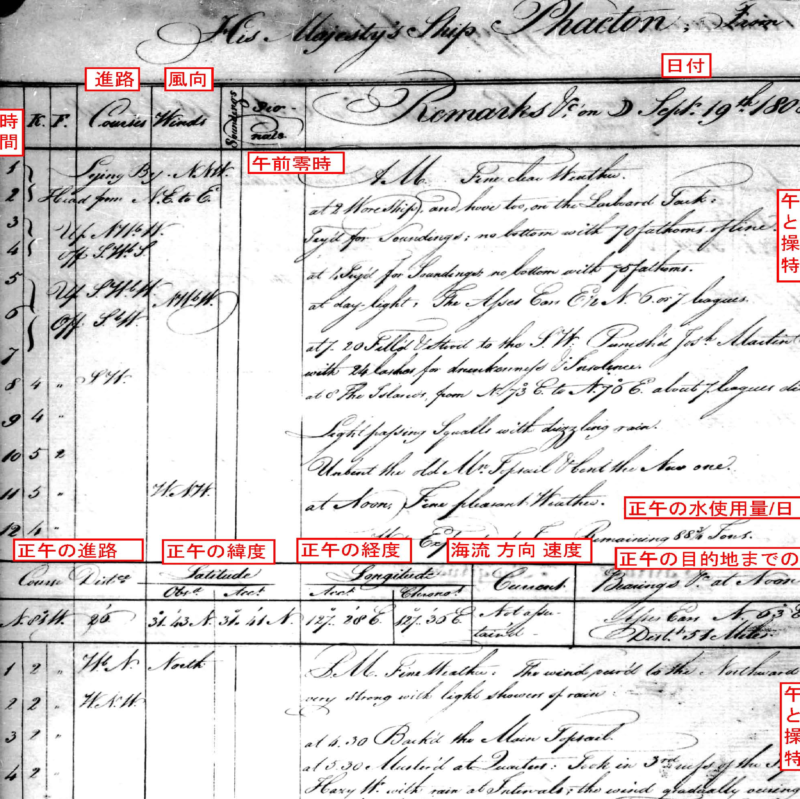 His Majesty's Ship Phaeton, From
日付
進路 風向
時間 K. F. Courses Winds Soundings Remarks &c. on Septr. 19th 180
午前零時
1 Lying By N.N.W. A M Fine clear Weather.
2 Head from N.E. to E at 2 Wore Ship, and hove too, on the Larboard Tack;
3 Up N.W.b.W. Try'd for Soundings; no bottom with 70 fathoms of line.
4 off S.W.b.S at 4 Try'd for Soundings no bottom with 70 fathoms.
5 Up S.W.b.W N.W.b.W. at day-light; The Asses Ears E½N. 6. or 7 leagues.
6 Off S.b.W.
7 at 7.20 Fill'd & Stood to the S.W. Punish'd Josh. Martin
with 24 lashes for drunkenness & Insolence.
8 4 " S.W at 8 The Islands, from N.73 E. to N.76 E. about 7 leagues di
9 4 "
Light passing Squalls with drizzling rain.
10 5 2 Unbent the old Mn. Topsail & bent the New one.
11 5 " W.N.W. at Noon, Fine pleasant Weather.
正午の水使用量/日
12 4 " Remaining 88¾ Tons.
正午の進路 正午の緯度 正午の経度 海流 方向 速度 正午の目的地までの
Course Distce Latitude Longitude Current Bearings &c. at Noon
Obsd. Acct. Acct. Chronor.
N.84W. 26 31.43 N. 31.41 N. 127.28 E. 127.30 E. Not ascertain'd Asses Ears N. 63 E
Distce. 51 Miles
1 2 " W.b.N. North P.M. Fine Weather. The wind veer'd to the Northward
very strong with light showers of rain.
2 2 " W.N.W.
3 2 " at 4.30 Back'd the Main Topsail.
4 2 " at 5.30 Muster'd at Quarters: Took in 3rd reefs of the
Hazy Wr. with rain at Intervals; the wind gradually
午
と
操
特
午
と
操
特